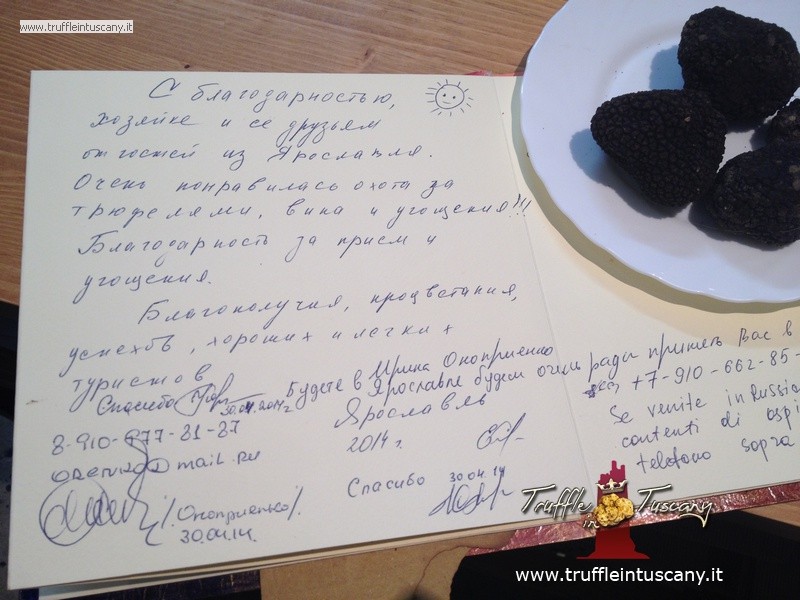 www.truffleintuscany.it
С благодарностью,
хозяйке и её друзьям
от гостей из Ярославля.
Очень понравилась охота за
трюфелями, вина и угощения!!!
Благодарность за прием и
угощения.
Благополучия, процветания,
успехов, хороших и легких
туристов
Спасибо
30.04.2014г
Будете в Ярославле будем очень рады принять Вас в
Ирина Оноприенко
+7-910-662-85-
Ярославль
2014 г.
8-910-977-81-87
@mail.ru
/Оноприенко/.
30.04.14.
Спасибо 30.04.14
Se venite in Russia
contenti di ospi
telefono sopra
Truffle in Tuscany
www.truffleintuscany.it